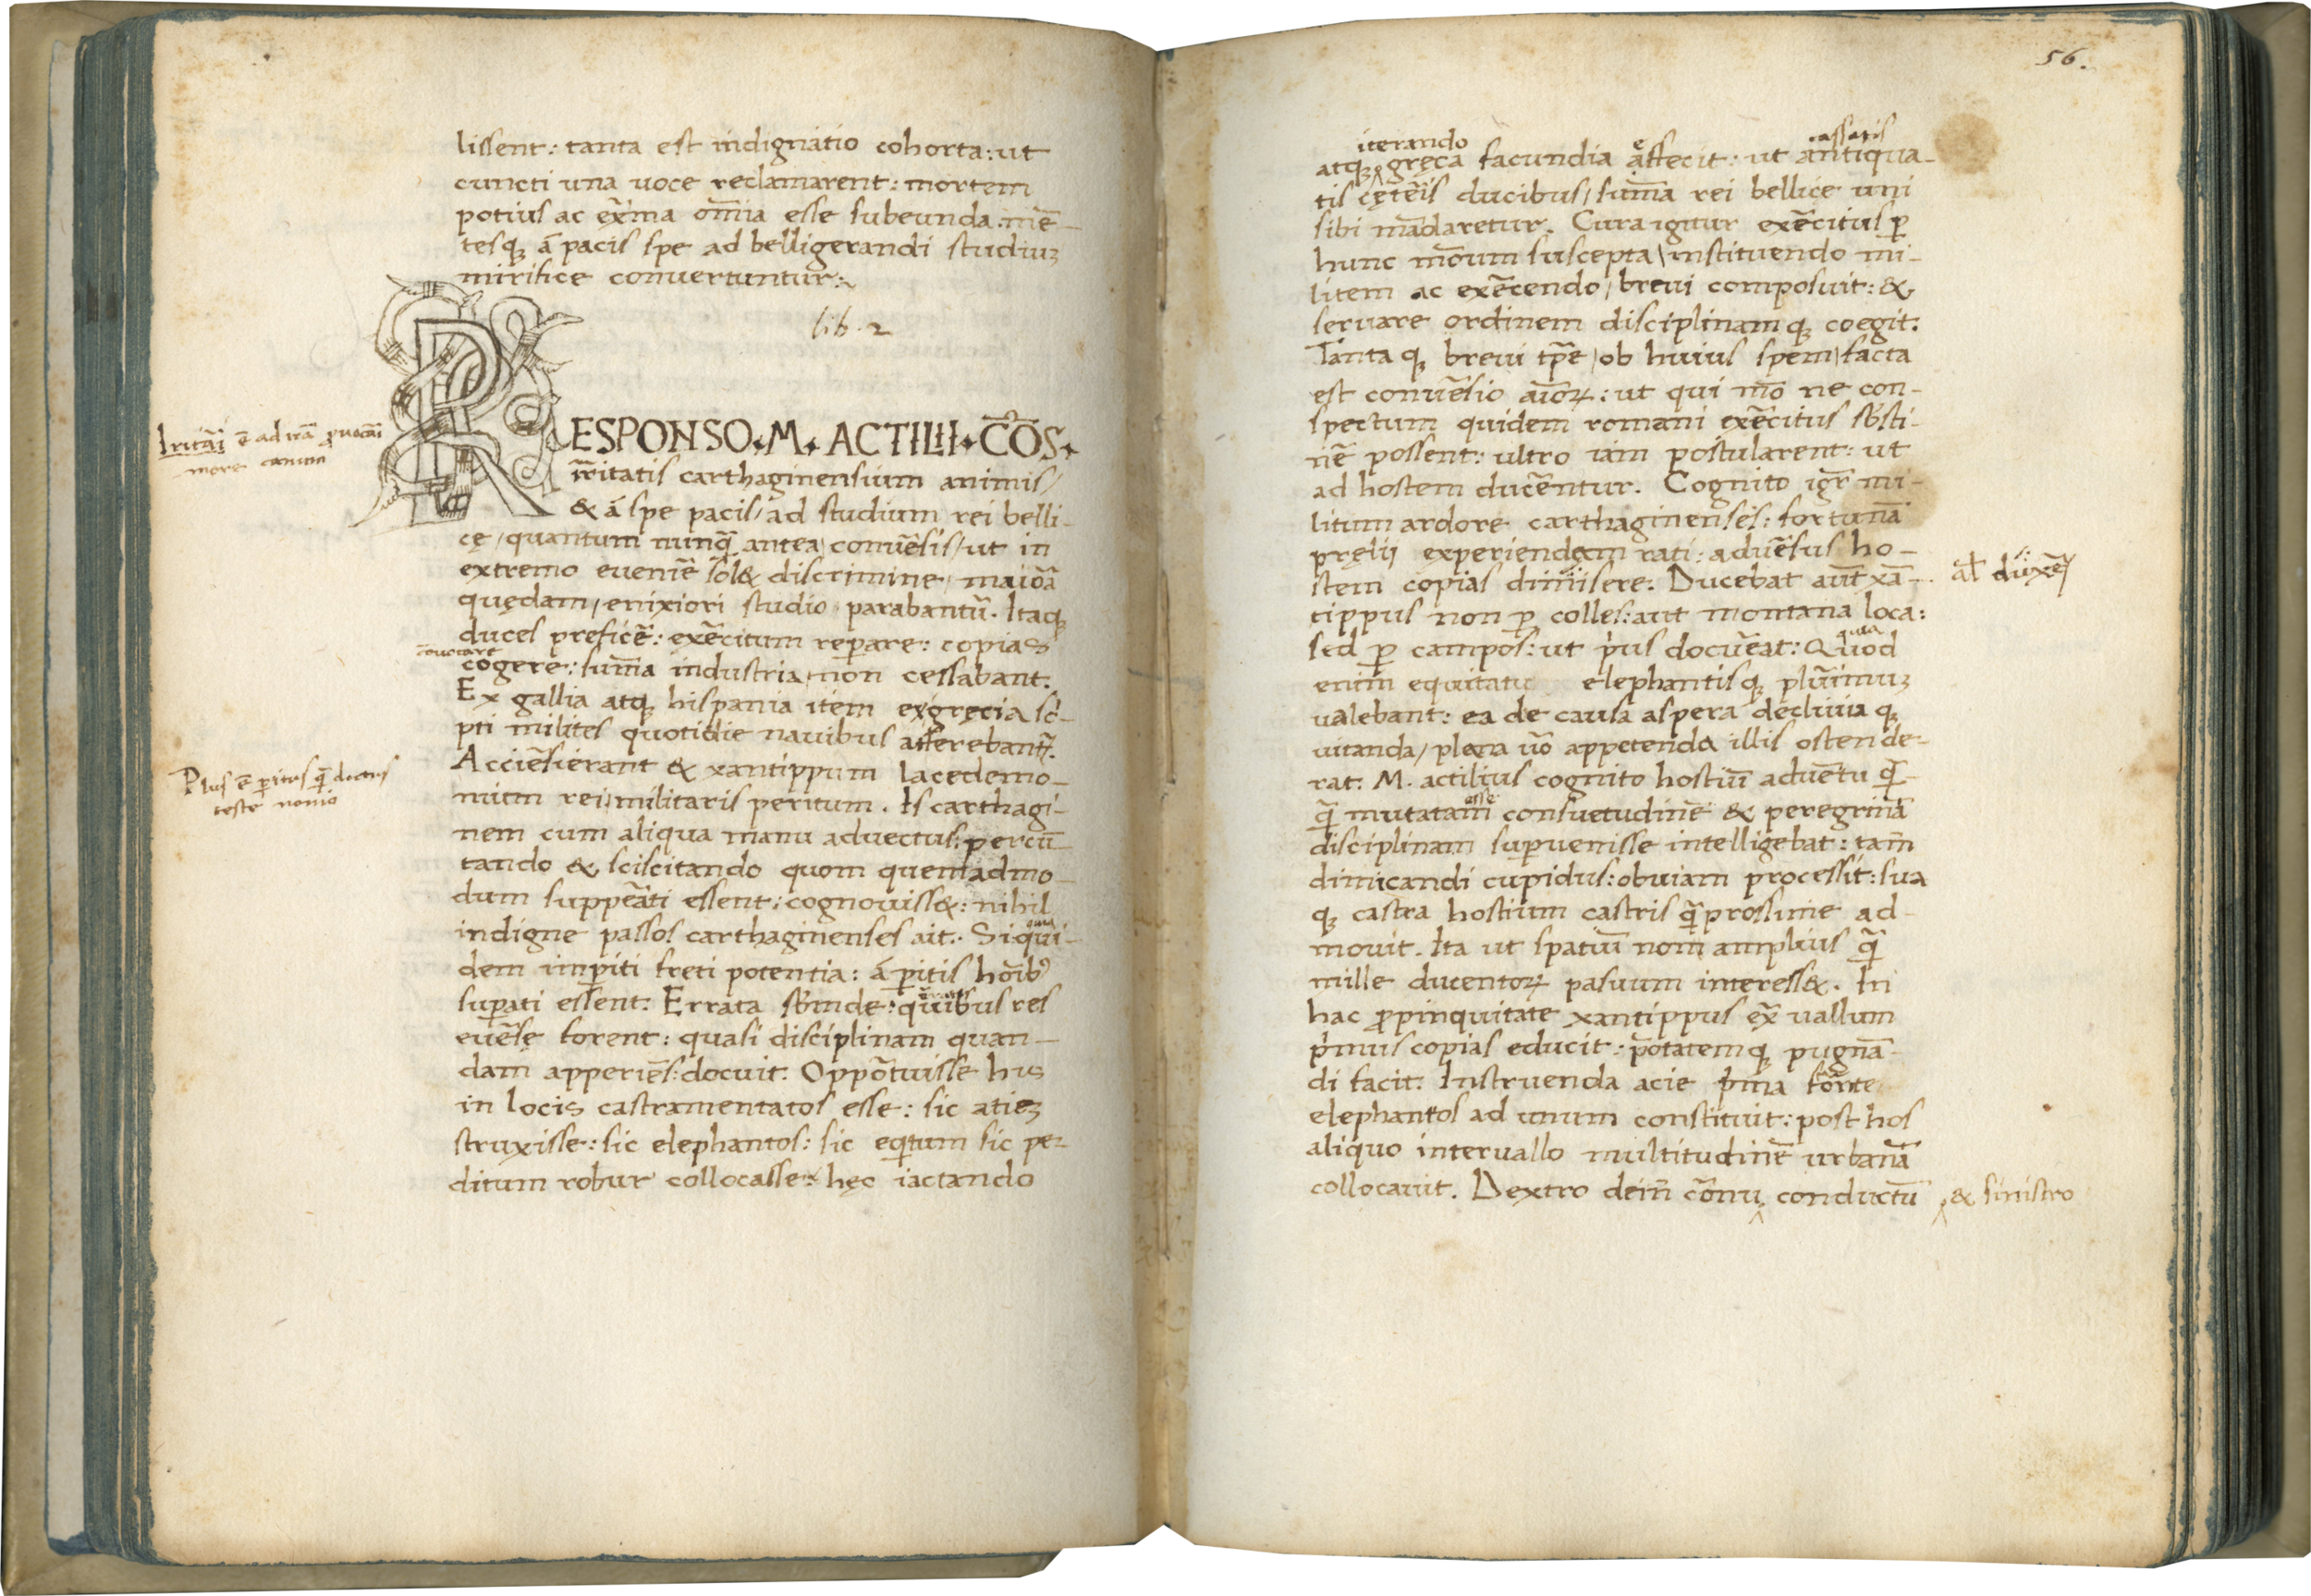 lissent: tanta est indignatio cohorta: ut
cuncti una uoce reclamarent: mortem
potius ac exᷓma om̄ia esse subeunda. mē-
tesq; á pacis spe ad belligerandi studiuꝫ
mirifice conuertuntur:
lib. 2
RESPONSO. M. ACTILII. CŌS.
irritatis carthaginensium animis/
& á spe pacis/ ad studium rei belli-
cę/ quantum nunq̄ antea conūsis/ ut in
extremo eueniē sol& discrimine/ maiōa
quędam/ enixiori studio parabantū. Itaq;
duces preficē: exēcitum reꝑare: copias
conuocare
cogere: sum̄a industria non cessabant.
Ex gallia atq; hispania item ex gręcia sc̄-
pti milites quotidie nauibus afferebant᷑.
Acciūsierant & xantippum lacedemo-
nium rei militaris peritum. Is carthagi-
nem cum aliqua manu aduectus: percū-
tando & sciscitando quom quemadmo-
dum suppēati essent: cognouiss&: nihil
indigne passos carthaginenses ait. Siqui-
dem imꝑiti freti potentia: á ꝑitis hoīb9
suꝑati essent. Errata subinde: quibus res
euēse forent: quasi disciplinam quan-
dam apperiēs: docuit. Oppōtuisse his
in locis castramentatos esse: sic atieꝫ
struxisse: sic elephantos: sic eq̇tum sic pe-
ditum robur collocasse: hęc iactando
Iritāi ē ad irā ꝓuocāi
more canum
Plus ē ꝑitus q̄ doctus
teste nonio
56.
iterando
cassatis
atq; gręca facundia affecit: ut antiqua-
tis cętēis ducibus/ sum̄a rei bellice uni
sibi mādaretur. Cura igitur exēcitus ꝑ
hunc m̄oum suscepta/ instituendo mi-
litem ac exēcendo/ breui composuit: &
seruare ordinem disciplinam q; coegit.
Tanta q; breui tp̄e/ ob huius spem/ facta
est conūsio aīoꝝ: ut qui mō ne con-
spectum quidem romani exēcitus susti-
nē possent: ultro iam postularent: ut
ad hostem ducēntur. Cognito igr̄ mi-
litum ardore carthaginenses: fortunā
pręlij experiendam rati: aduēsus ho-
stem copias dimisere. Ducebat aūt xā-
al' duxēꝝ
tippus non ꝑ colles: aut montana loca:
sed ꝑ campos: ut p̍us docūeat: Quod
quia
enim equitatu elephantis q; plūimuꝫ
ualebant: ea de causa aspera decliuia q;
uitanda/ plana ūo appetenda illis ostende-
rat. M. actilius cognito hostiū aduētu q̄-
esse
q̄ mutatam consuetudinē & peregrinā
disciplinam suꝑuenisse intelligebat: tam̄
dimicandi cupidus: obuiam processit: sua
q; castra hostium castris q̄ prossime ad-
mouit. Ita ut spatiū non amplius q̄
mille ducentoꝝ pasuum interess&. In
hac ꝓpinquitate xantippus exᷓ uallum
p̍mus copias educit: p̄otatem q; pugnā-
di facit. Instruenda acie p̍ma fronte
elephantos ad unum constituit: post hos
aliquo interuallo multitudinē urbanā
collocauit. Dextro dein̄ cōnu conductū
& sinistro